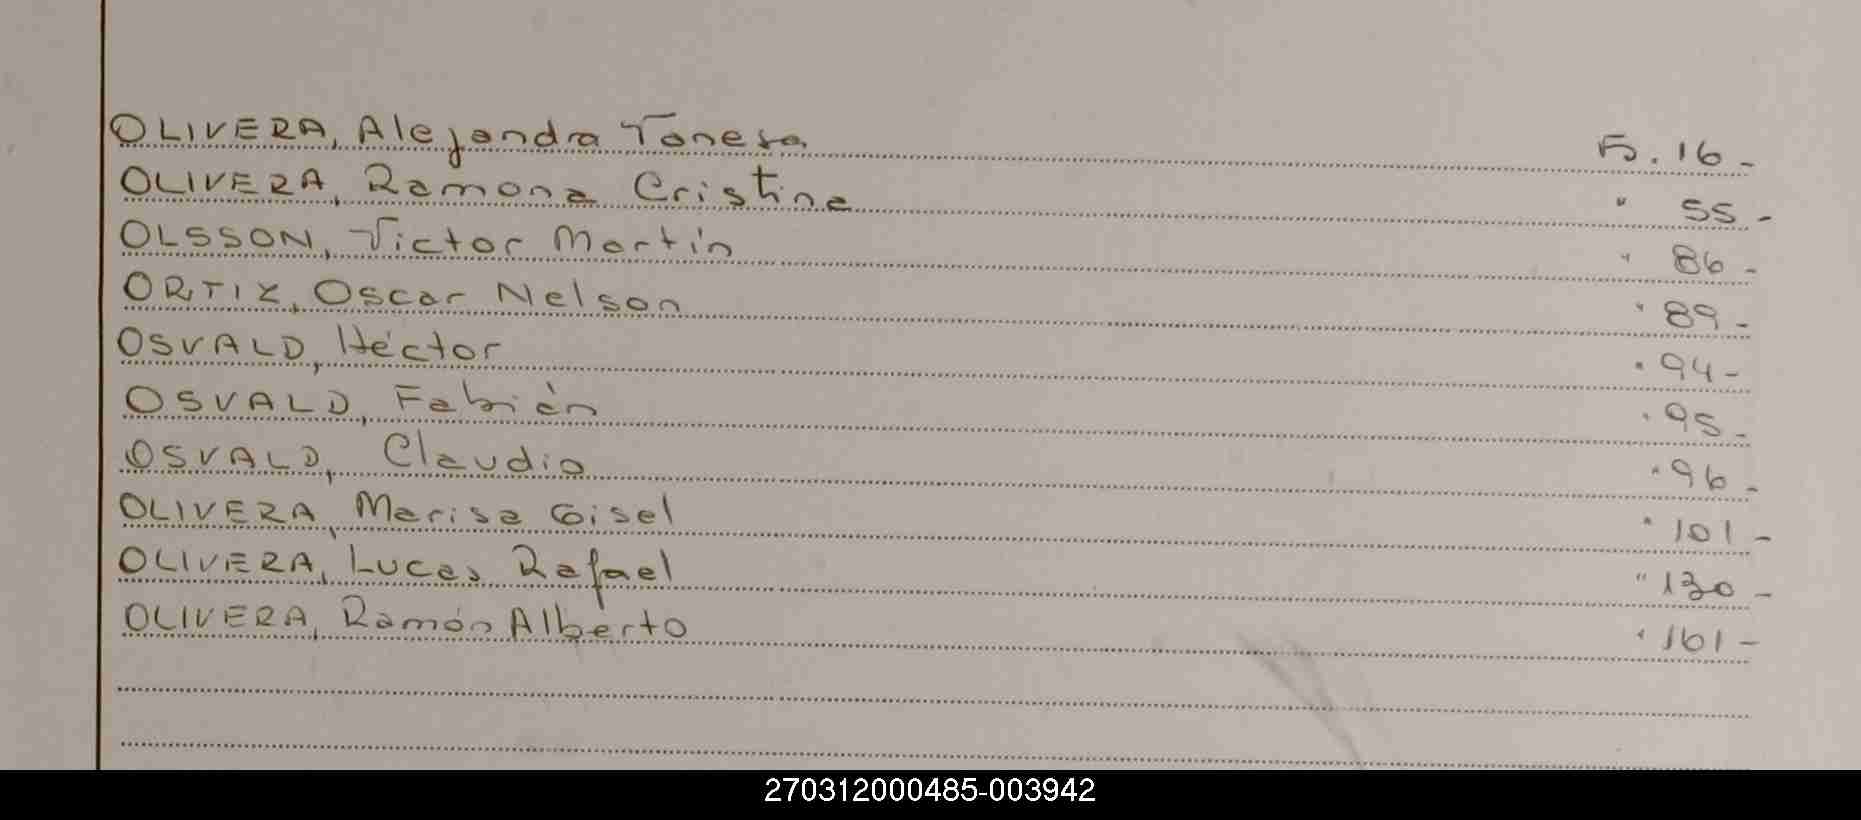 OLIVERA, Alejandra Vanesa Fs. 16-
OLIVERA, Ramona Cristina " 55-
OLSSON, Victor Martín " 86-
ORTIZ, Oscar Nelson " 89-
OSVALD, Héctor " 94-
OSVALD, Fabián " 95-
OSVALD, Claudio " 96-
OLIVERA, Marisa Gisel " 101-
OLIVERA, Lucas Rafael " 130-
OLIVERA, Ramón Alberto " 161-
270312000485-003942